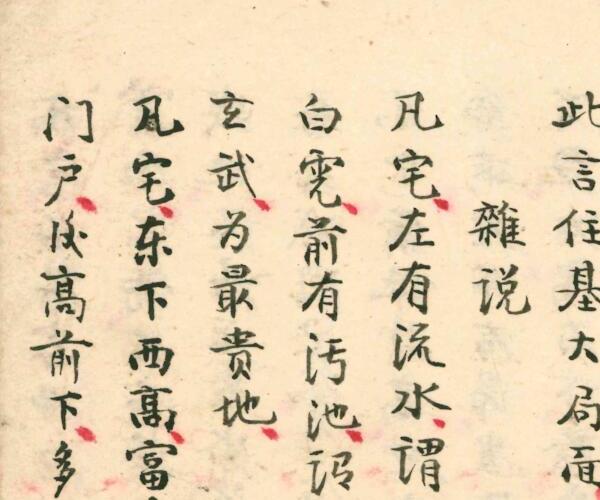 此言住基大局面
雜说
凡宅左有流水谓
白虎前有污池谓
玄武为最贵地
凡宅东下西高富
门户后高前下多